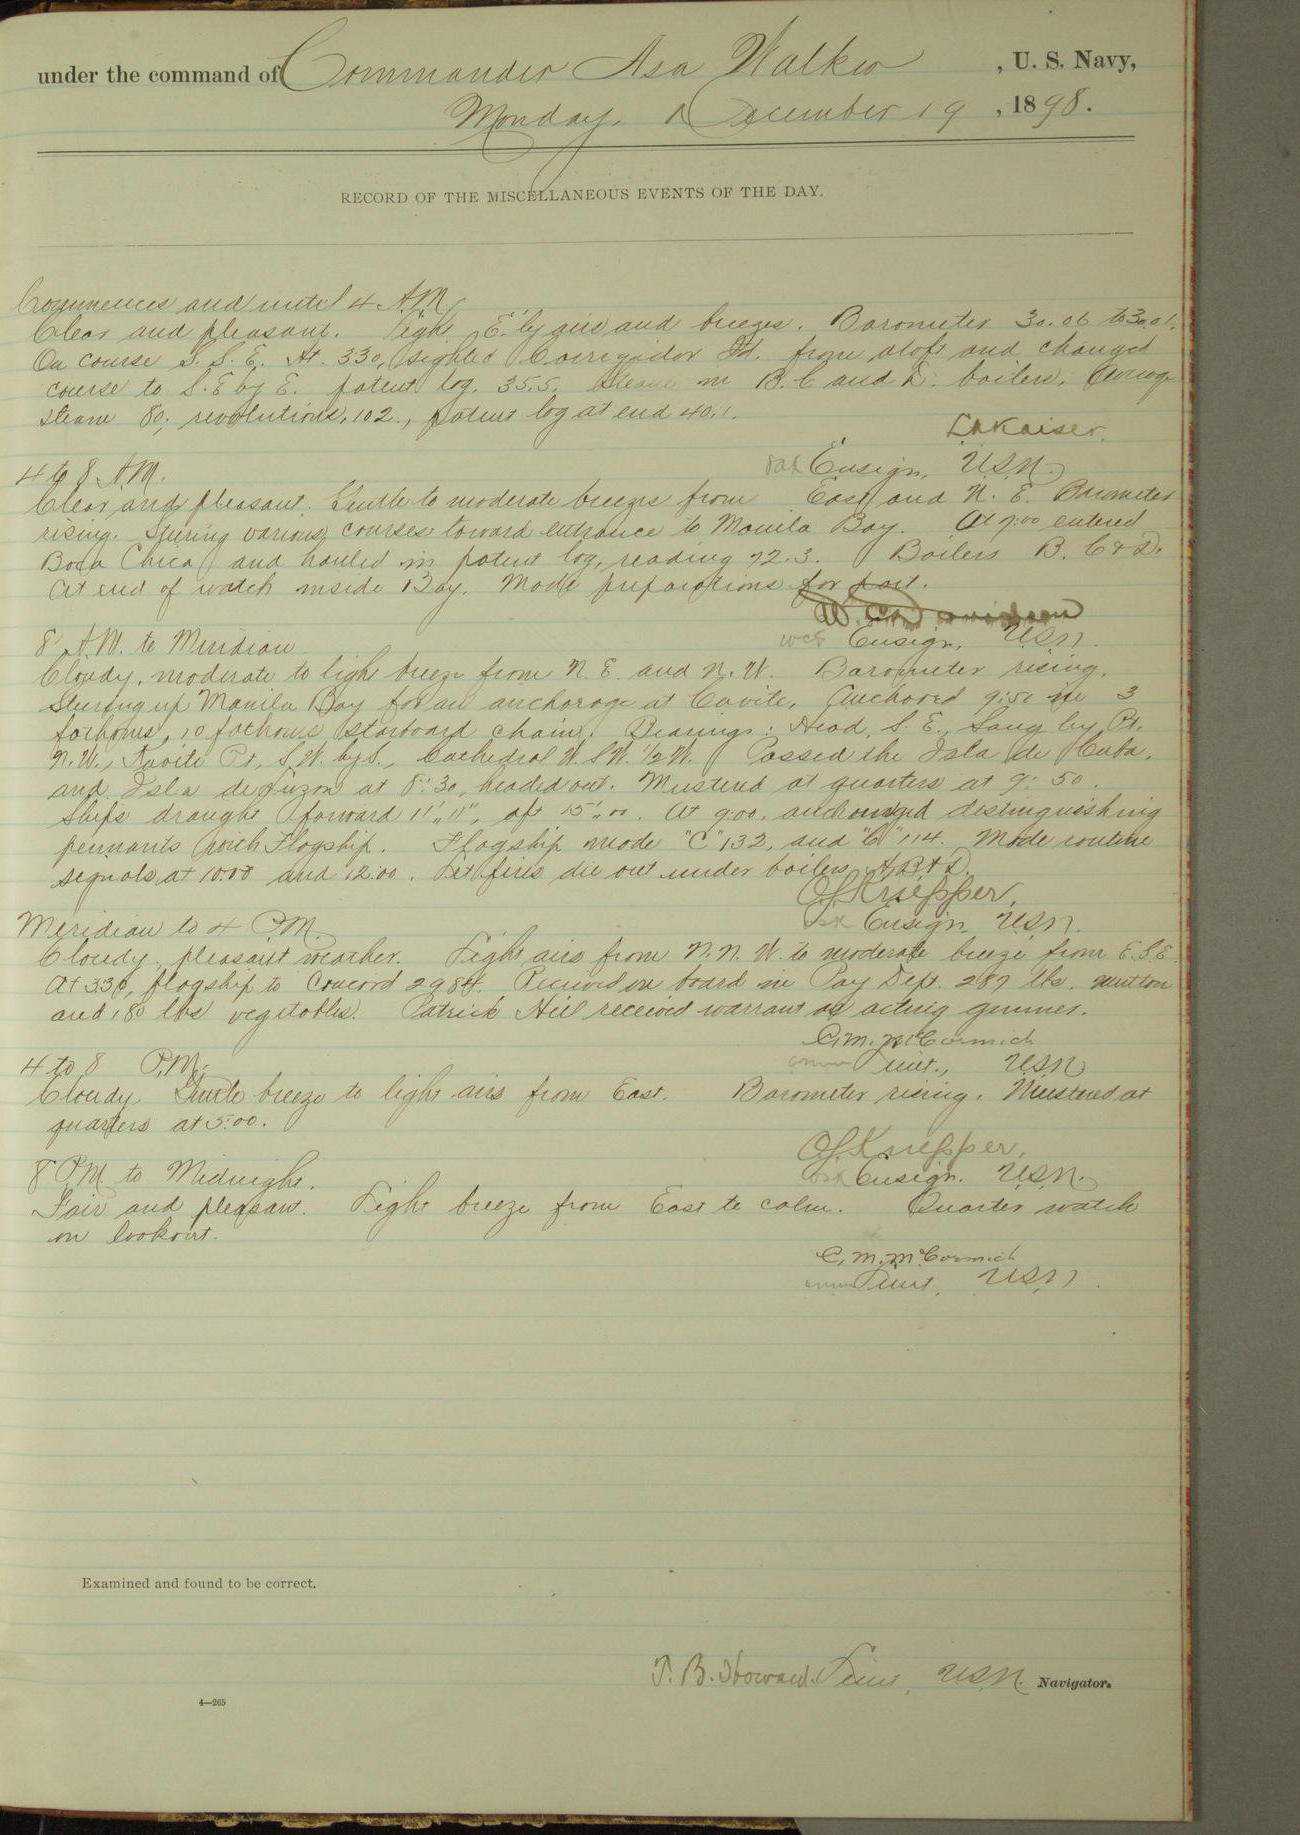 under the command of Commander Asa Walker, U. S. Navy,
Monday, December 19, 1898.
RECORD OF THE MISCELLANEOUS EVENTS OF THE DAY.
Commences and until 4 A.M.
Clear and pleasant. Light E'ly airs and breezes. Barometer 30.06 to 30.01.
On course S. S. E. At 330, sighted Corregidor Id. from aloft and changed
course to S. E by E. patent log. 35.5. Steam in B. C and D. boilers. Average
steam 80; revolutions, 102., patent log at end 40.1.
L A Kaiser.
Ensign, U.S.N.
4 to 8 A.M.
Clear and pleasant. Gentle to moderate breezes from East and N. E. Barometer
rising. Steering various courses toward entrance to Manila Bay. At 7:00 entered
Boca Chica and hauled in patent log, reading 72.3. Boilers B. C & D.
At end of watch inside Bay. Made preparations for port.
Ensign, U.S.N.
8 A.M. to Meridian
Cloudy, moderate to light breeze from N. E. and N. W. Barometer rising.
Steering up Manila Bay for an anchorage at Cavite. Anchored 9:50 in 3
fathoms, 10 fathoms starboard chain. Bearings: Head, S. E., Sang ley Pt.
N. W., Cavite Pt, S. W. by S., Cathedral W. S W. 1/2 W. Passed the Isla de Cuba,
and Isla de Luzon at 8:30, headed out. Mustered at quarters at 9:50.
Ships draught forward 11', 11", aft 15',00. At 9:00. exchanged distinguishing
pennants with Flagship. Flagship made "C" 132, and "C" 114. Made routine
signals at 10:00 and 12:00. Let fires die out under boilers A, B & D.
O S Knepper,
Ensign, U.S.N.
Meridian to 4 P.M.
Cloudy, pleasant weather. Light airs from N. N. W. to moderate breeze from E. S E.
At 330, flagship to Concord 2984. Received on board in Pay Dept. 287 lbs. mutton
and 180 lbs vegetables. Patrick Hill received warrant as acting gunner.
C. M. McCormick
Lieut., U.S.N.
4 to 8 P.M.
Cloudy. Gentle breeze to light airs from East. Barometer rising. Mustered at
quarters at 5:00.
O S Knepper,
Ensign. U.S.N.
8 P.M. to Midnight.
Fair and pleasant. Light breeze from East to calm. Quarter watch
on lookout.
C. M. McCormick
Lieut, U.S.N.
Examined and found to be correct.
T. B. Howard. Lieut, U.S.N. Navigator.
4—265